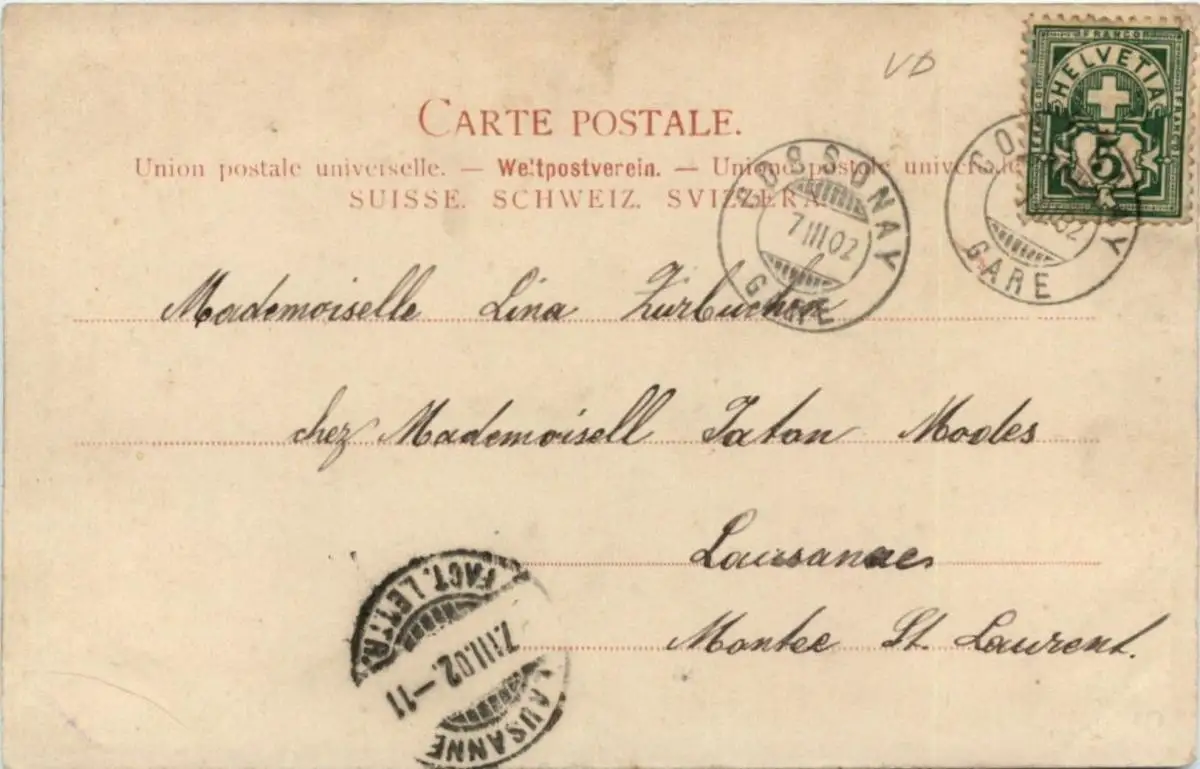 VD
FRANCO
HELVETIA
5
CARTE POSTALE.
Union postale universelle. — Weltpostverein. — Unione postale universale
SUISSE. SCHWEIZ. SVIZZERA.
COSSONAY
7 III.02
GARE
COSSONAY
GARE
Mademoiselle Lina Zurbuchen
chez Mademoisell Taton Modes
Laussanne
Montee St. Laurent.
FACT. LETTR.
7.III.02.-11
LAUSANNE